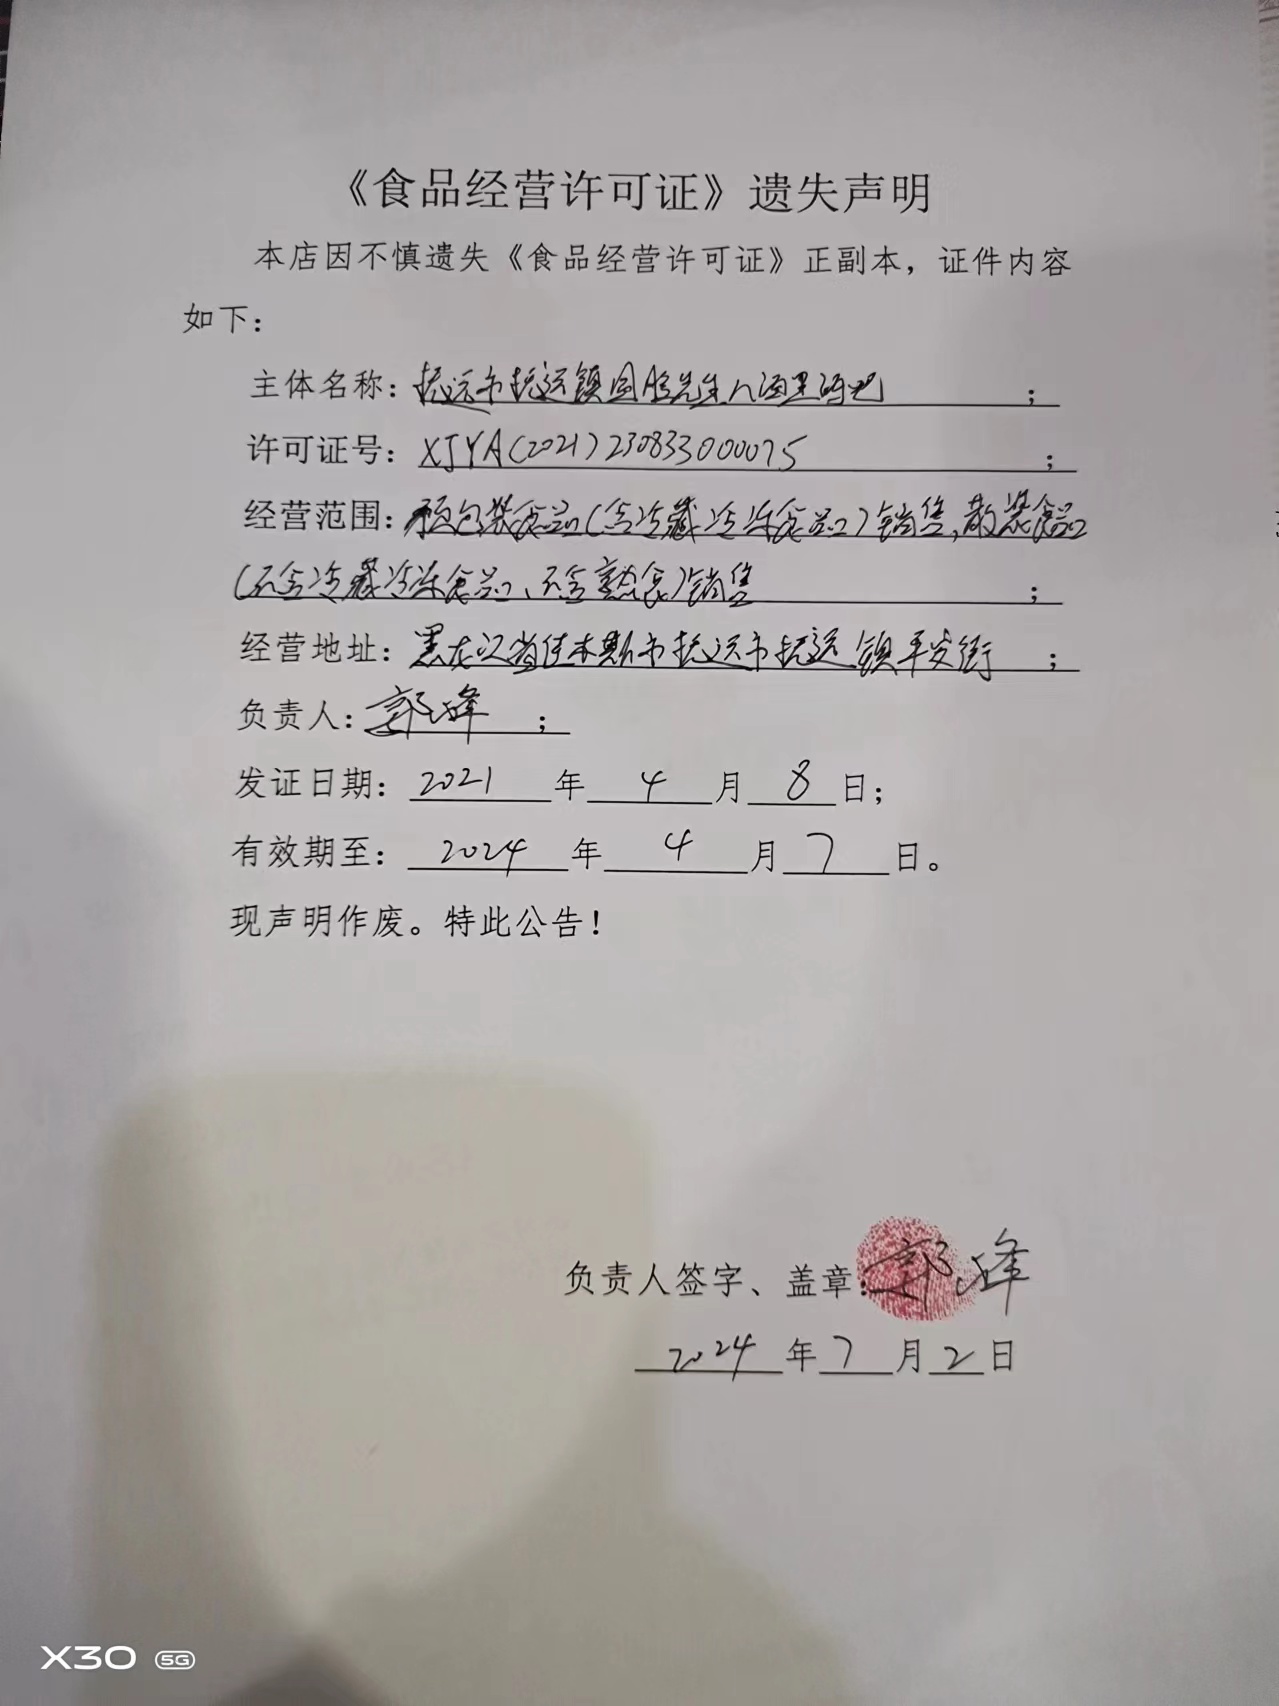 《食品经营许可证》遗失声明
本店因不慎遗失《食品经营许可证》正副本，证件内容
如下：
主体名称：抚远市抚远镇周胜先生八酒里酒吧；
许可证号：XJYA(2021)230833000075；
经营范围：预包装食品(含冷藏冷冻食品)销售，散装食品
(不含冷藏冷冻食品、不含熟食)销售；
经营地址：黑龙江省佳木斯市抚远市抚远镇平安街；
负责人：郭峰；
发证日期：2021年4月8日；
有效期至：2024年4月7日。
现声明作废。特此公告！
负责人签字、盖章：郭峰
2024年7月2日
X30 5G